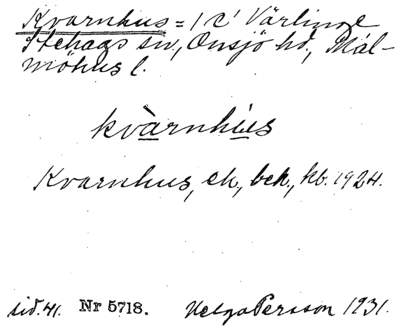 Kvarnhus = 1 c' Värlinge
Stehags sn, Onsjö hd., Mal-
möhus l.
kvàrnhùs
Kvarnhus, eh., beb., kb. 1924.
sid. 41. Nr 5718. Helga Persson 1931.